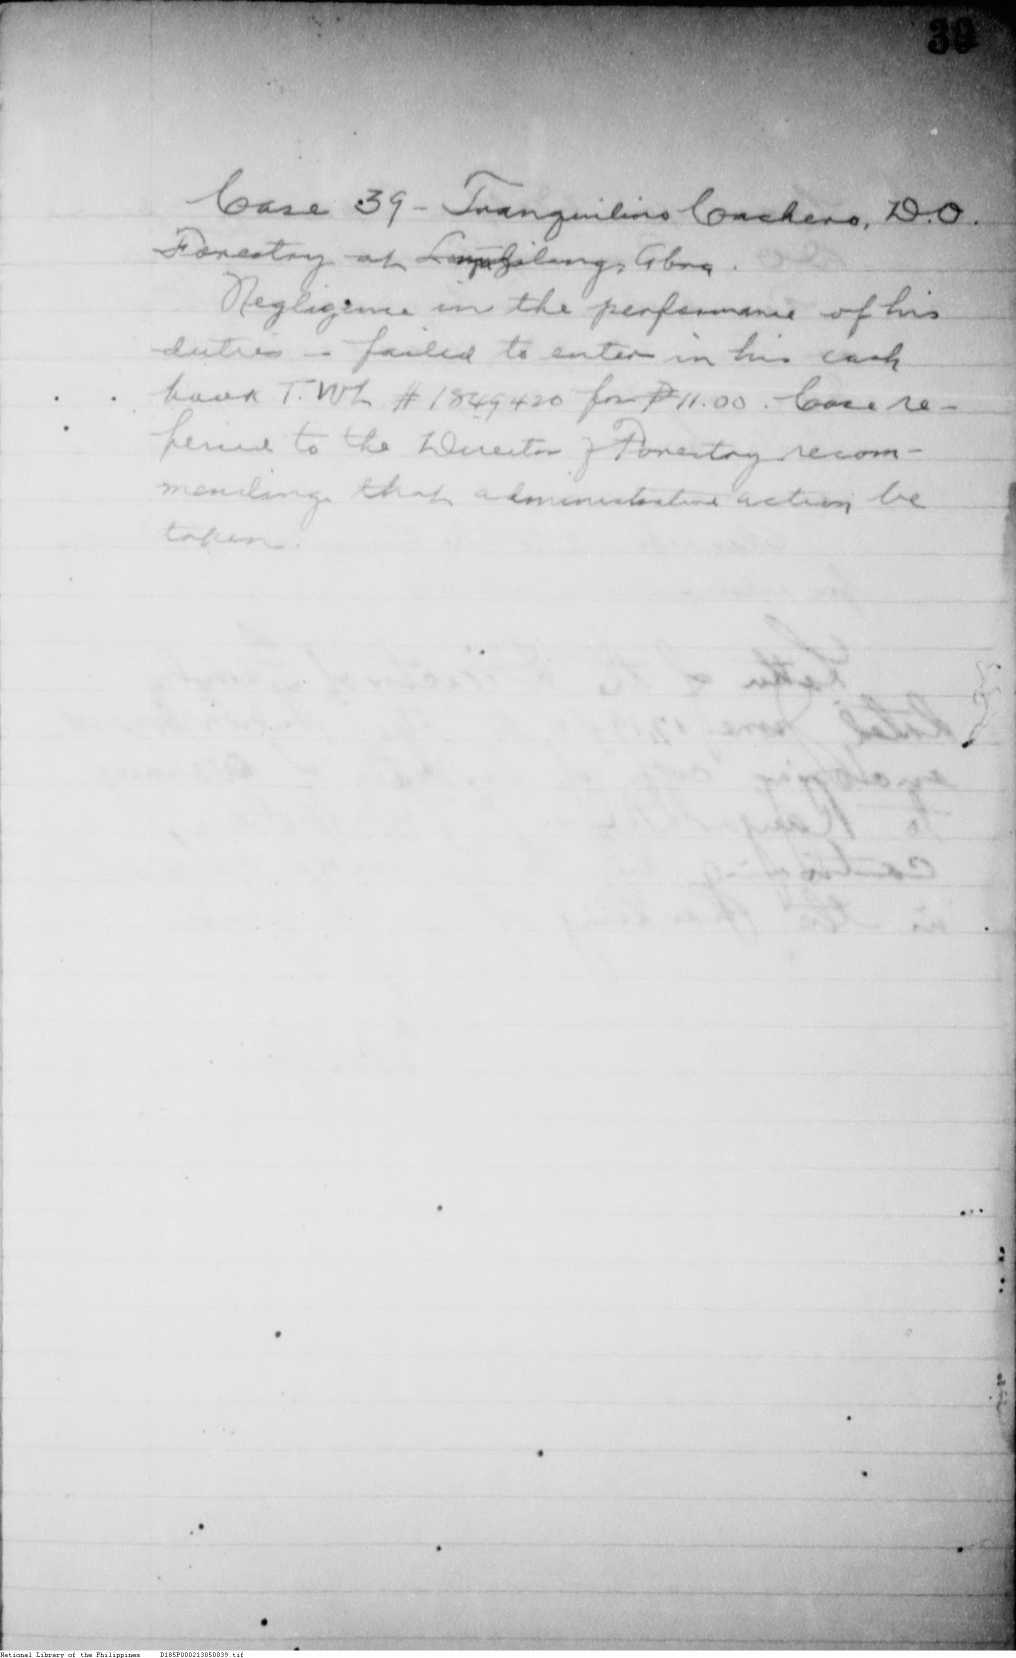 39
Case 39 - Tranquilino Cachero, D.O.
Forestry at Lagangilang, Abra.
Negligence in the performance of his
duties - failed to enter in his cash
book T.Wh # 1849420 for ₱11.00. Case re-
ferred to the Director of Forestry recom-
mending that administrative action be
taken.
National Library of the Philippines D185P000213050039.tif